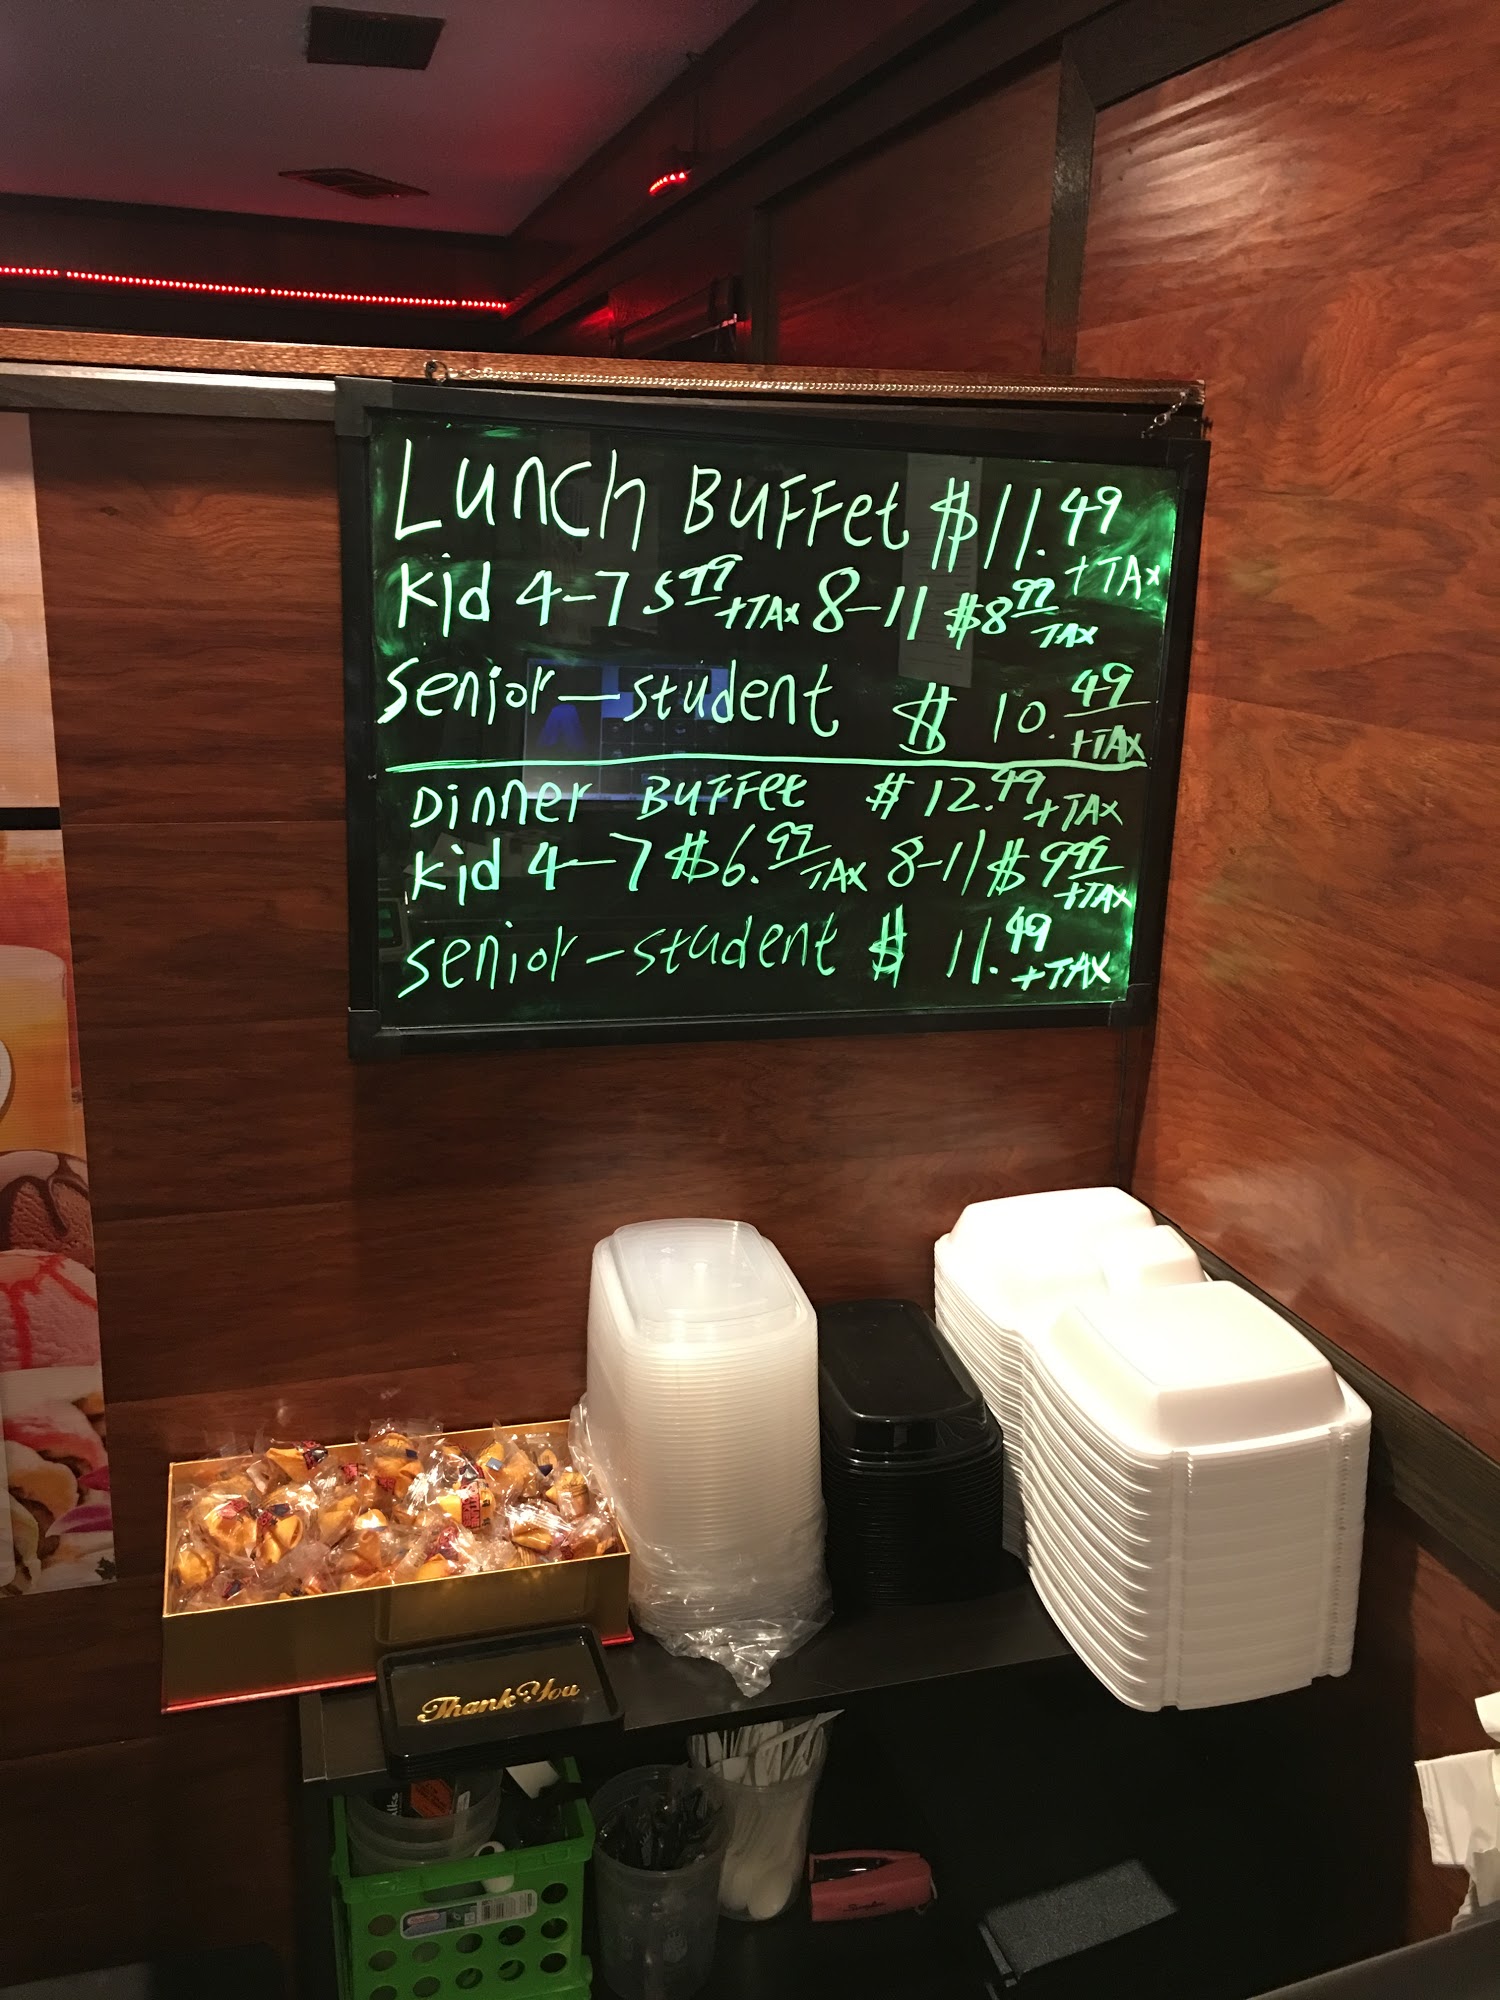 Lunch Buffet $11.49 +TAX
Kid 4-7 5.99 +TAX 8-11 $8.99 TAX
Senior-student $ 10.49 +TAX
Dinner Buffet $12.49 +TAX
Kid 4-7 $6.99 TAX 8-11 $9.99 +TAX
senior-student $ 11.49 +TAX
Thank You